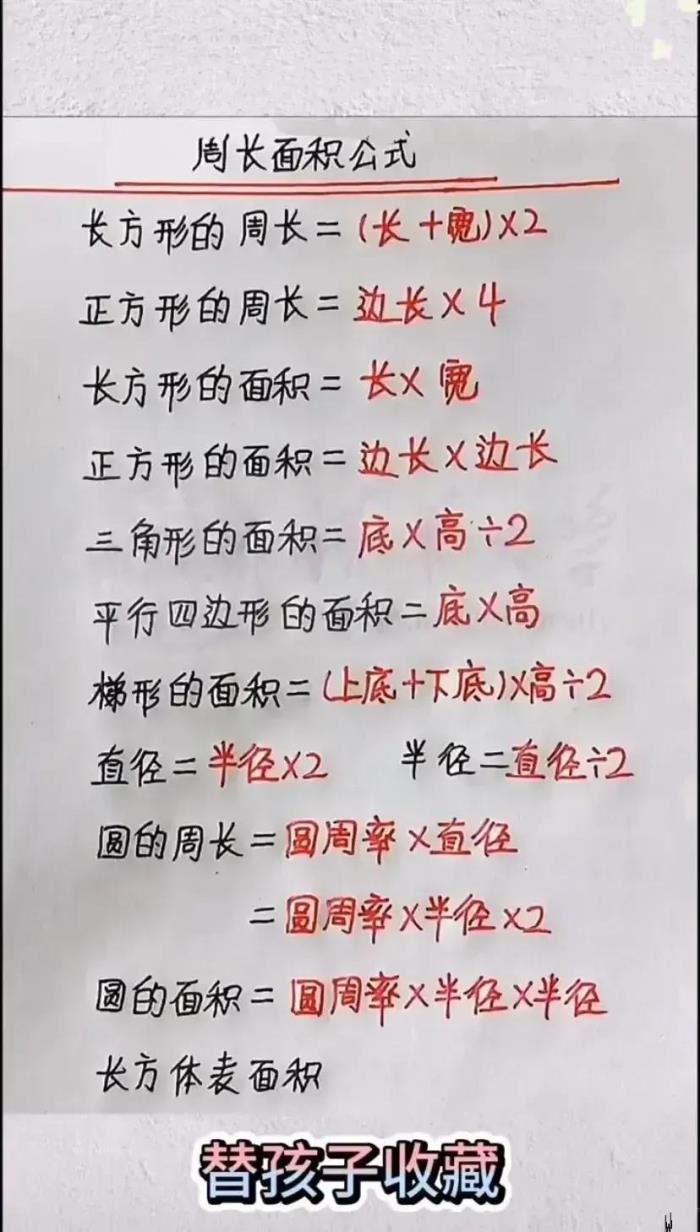 周长面积公式
长方形的周长=(长+宽)×2
正方形的周长=边长×4
长方形的面积=长×宽
正方形的面积=边长×边长
三角形的面积=底×高÷2
平行四边形的面积=底×高
梯形的面积=(上底+下底)×高÷2
直径=半径×2 半径=直径÷2
圆的周长=圆周率×直径
=圆周率×半径×2
圆的面积=圆周率×半径×半径
长方体表面积
替孩子收藏